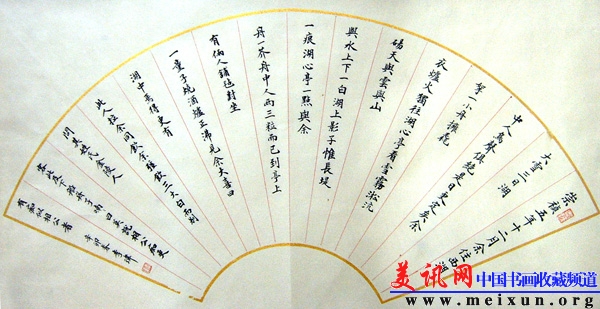 崇禎五年十二月余住西湖
大雪三日湖
中人鳥聲俱絕是日更定矣余
拏一小舟擁毳
衣爐火獨往湖心亭看雪霧淞沆
碭天與雲與山
與水上下一白湖上影子惟長堤
一痕湖心亭一點與余
舟一芥舟中人兩三粒而已到亭上
有兩人鋪氈對坐
一童子燒酒爐正沸見余大喜曰
湖中焉得更有
此人拉余同飲余強飲三大白而別
問其姓氏金陵人
客此及下船舟子喃曰莫說相公癡更
有癡似相公者 辛卯春
美讯网
中国书画收藏频道
www.meixun.org